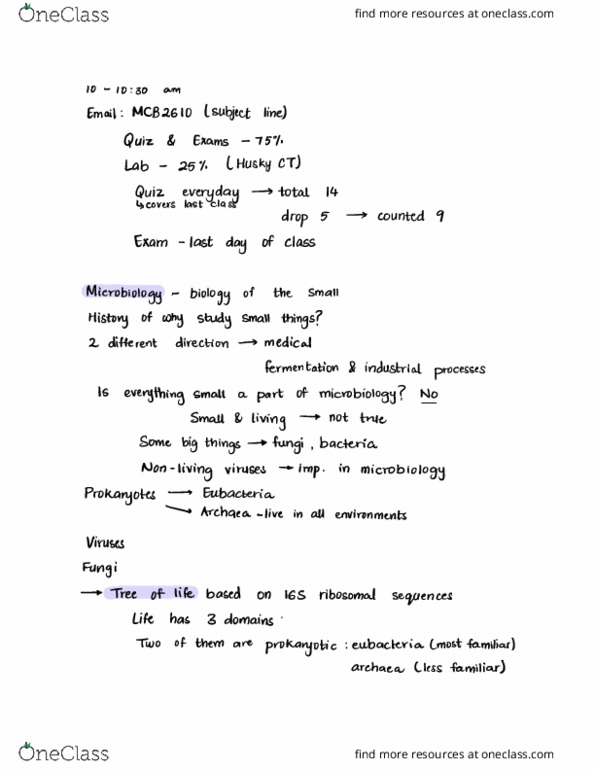 OneClass
find more resources at oneclass.com
10 - 10:30 am
Email: MCB2610 (subject line)
Quiz & Exams - 75%
Lab - 25% (Husky CT)
Quiz everyday → total 14
↳covers last class
drop 5 → counted 9
Exam - last day of class
Microbiology - biology of the small
History of why study small things?
2 different direction → medical
fermentation & industrial processes
Is everything small a part of microbiology? No
Small & living → not true
Some big things → fungi, bacteria
Non-living viruses → imp. in microbiology
Prokaryotes → Eubacteria
→ Archaea - live in all environments
Viruses
Fungi
→ Tree of life based on 16S ribosomal sequences
Life has 3 domains
Two of them are prokaryotic: eubacteria (most familiar)
archaea (less familiar)
OneClass
find more resources at oneclass.com